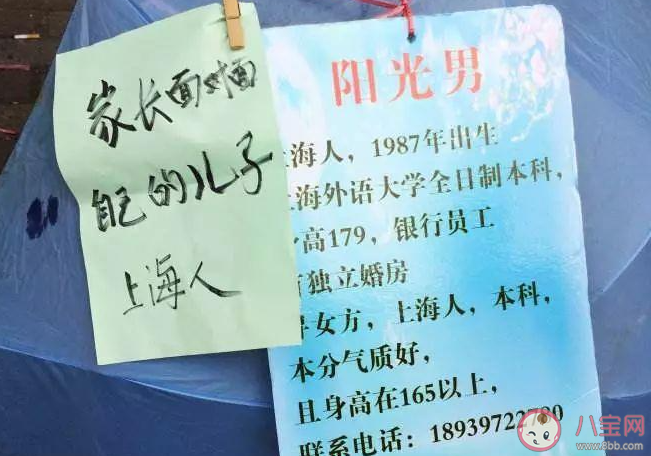 家长面对面
自己的儿子
上海人
阳光男
海人，1987年出生
海外语大学全日制本科，
高179，银行员工
独立婚房
女方，上海人，本科，
本分气质好，
且身高在165以上，
联系电话：18939722
八宝网
www.8bb.com